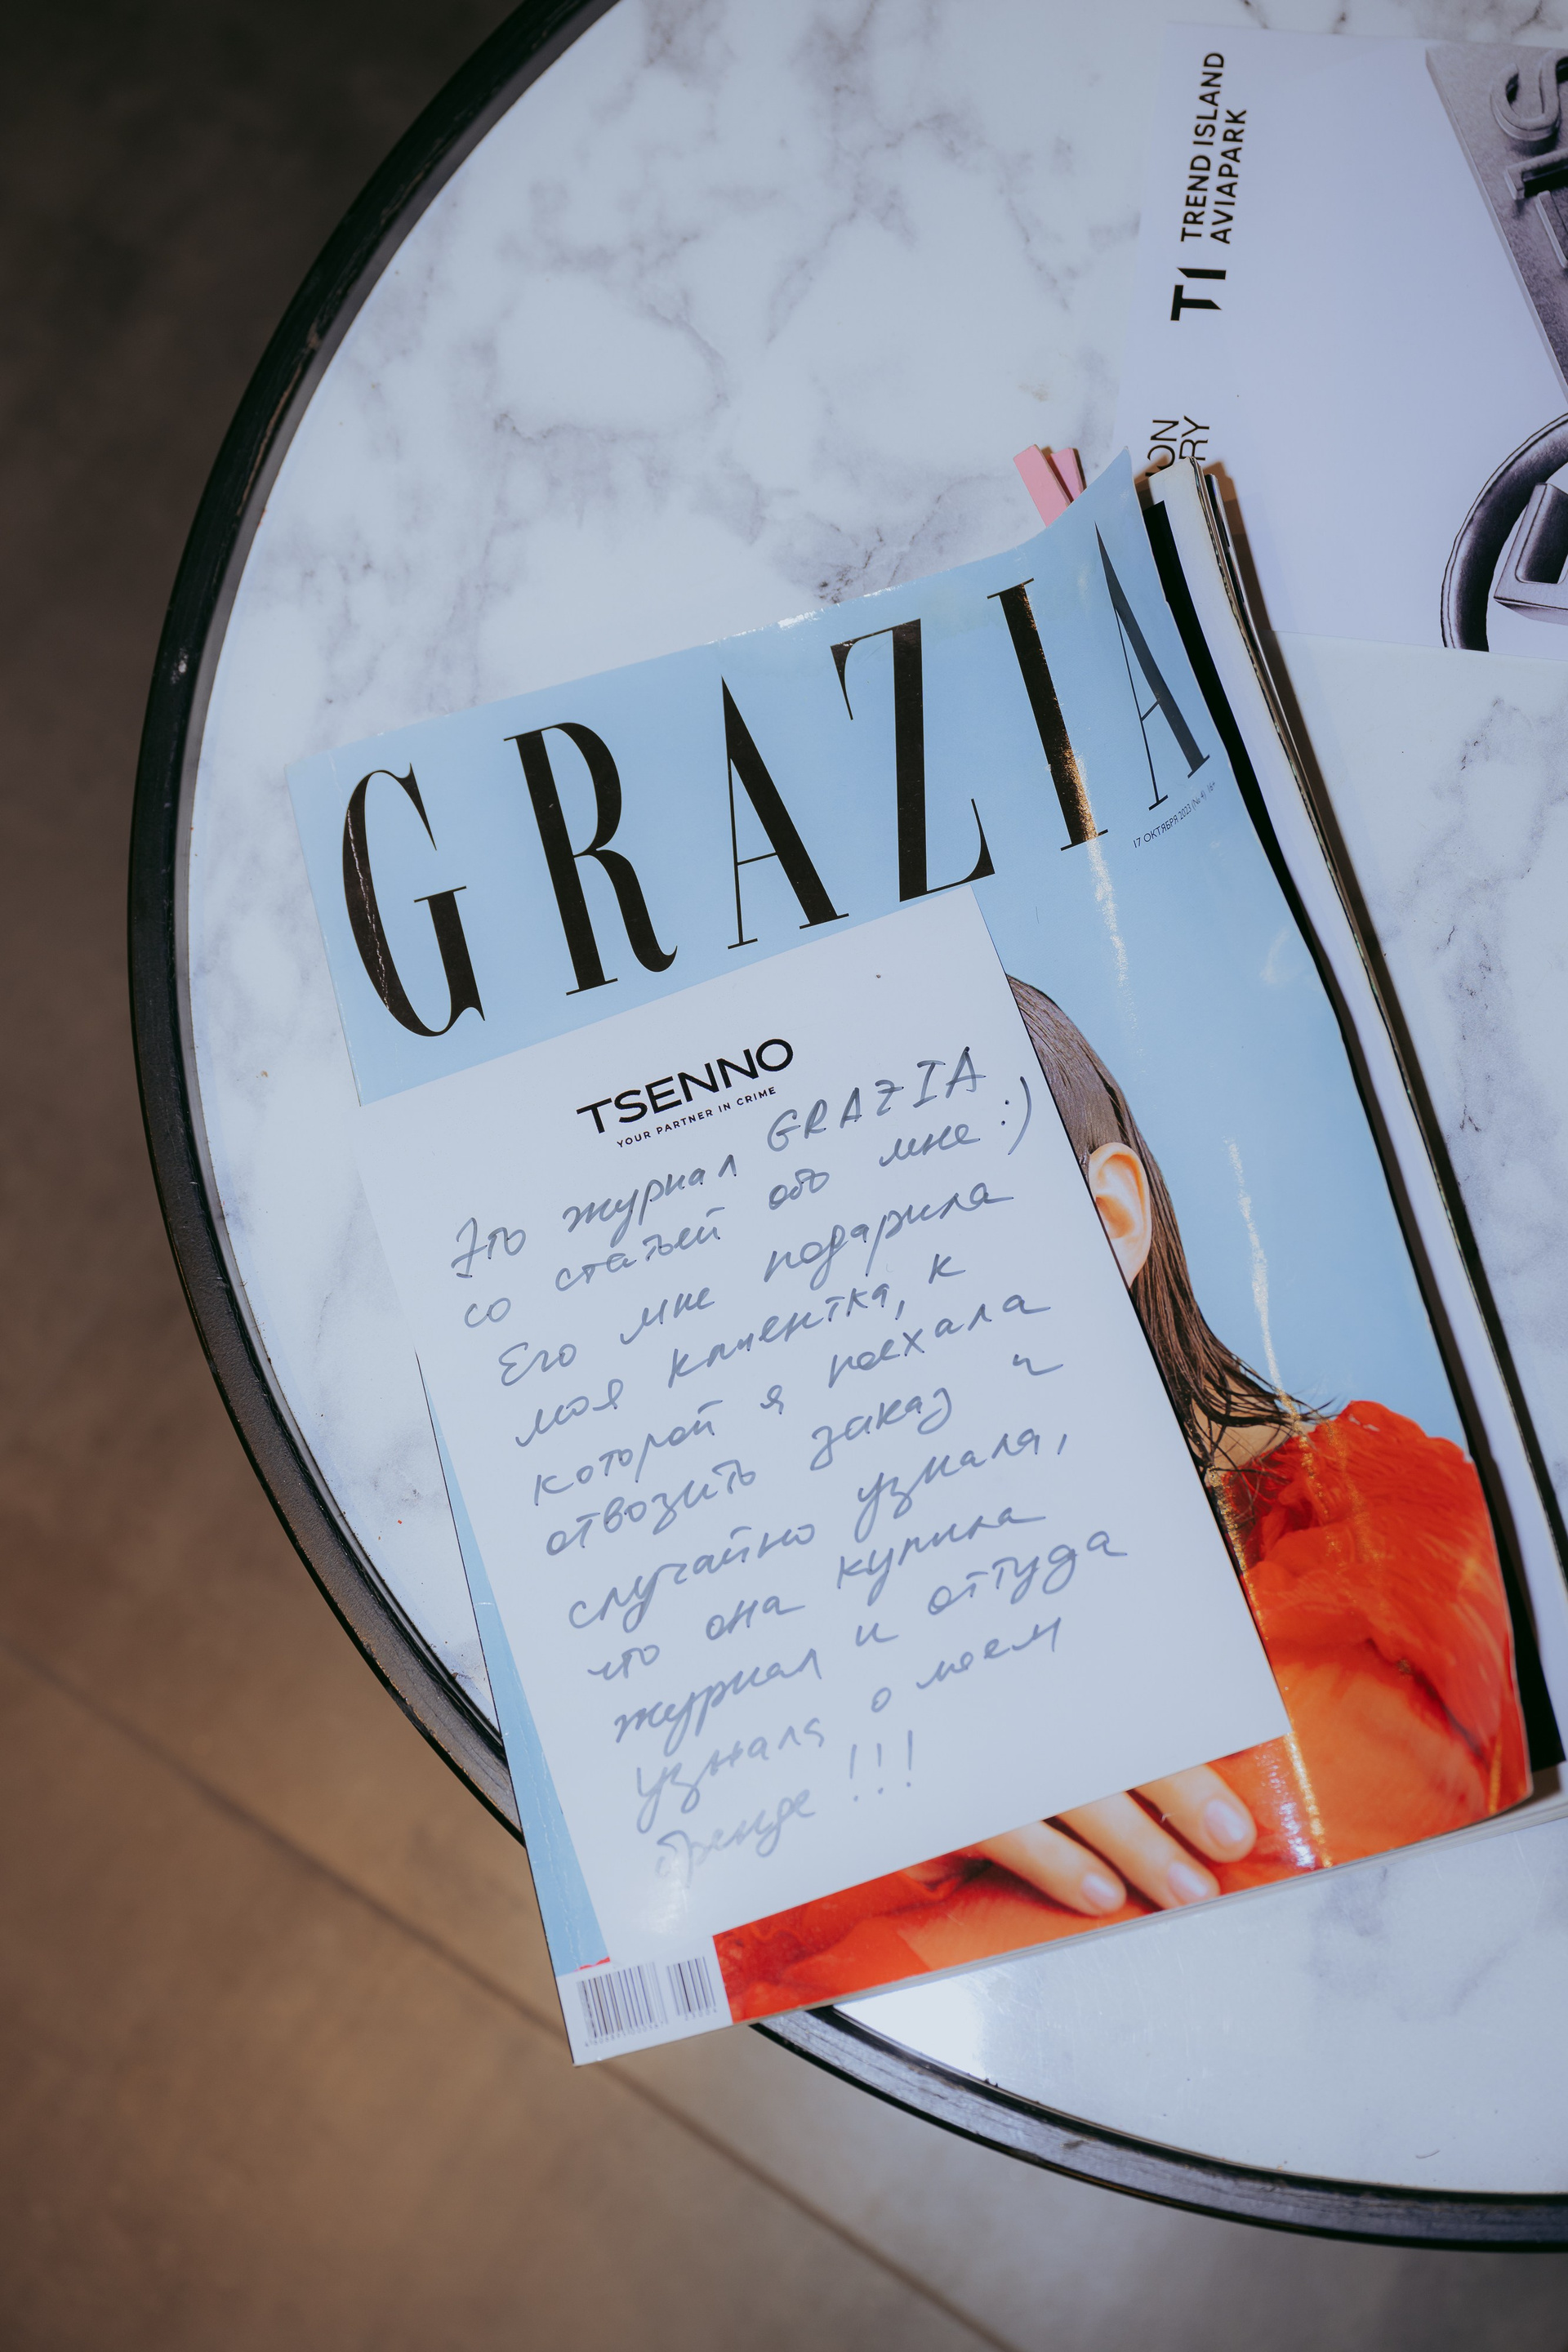 TREND ISLAND
AVIAPARK
TI
ON
RY
GRAZIA
17 ОКТЯБРЯ 2023 (№ 4) 16+
TSENNO
YOUR PARTNER IN CRIME
Это журнал GRAZIA
со статьей обо мне :)
Его мне подарила
моя клиентка, к
которой я поехала
отвозить заказ и
случайно узнала,
что она купила
журнал и оттуда
узнала о моем
бренде !!!